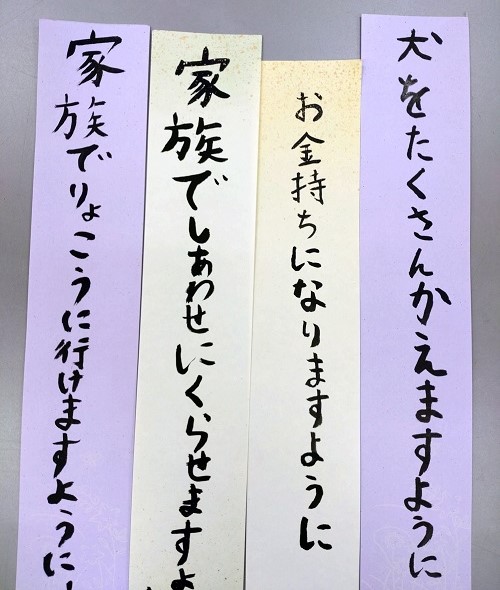 犬をたくさんかえますように
お金持ちになりますように
家族でしあわせにくらせますよ
家族でりょこうに行けますように